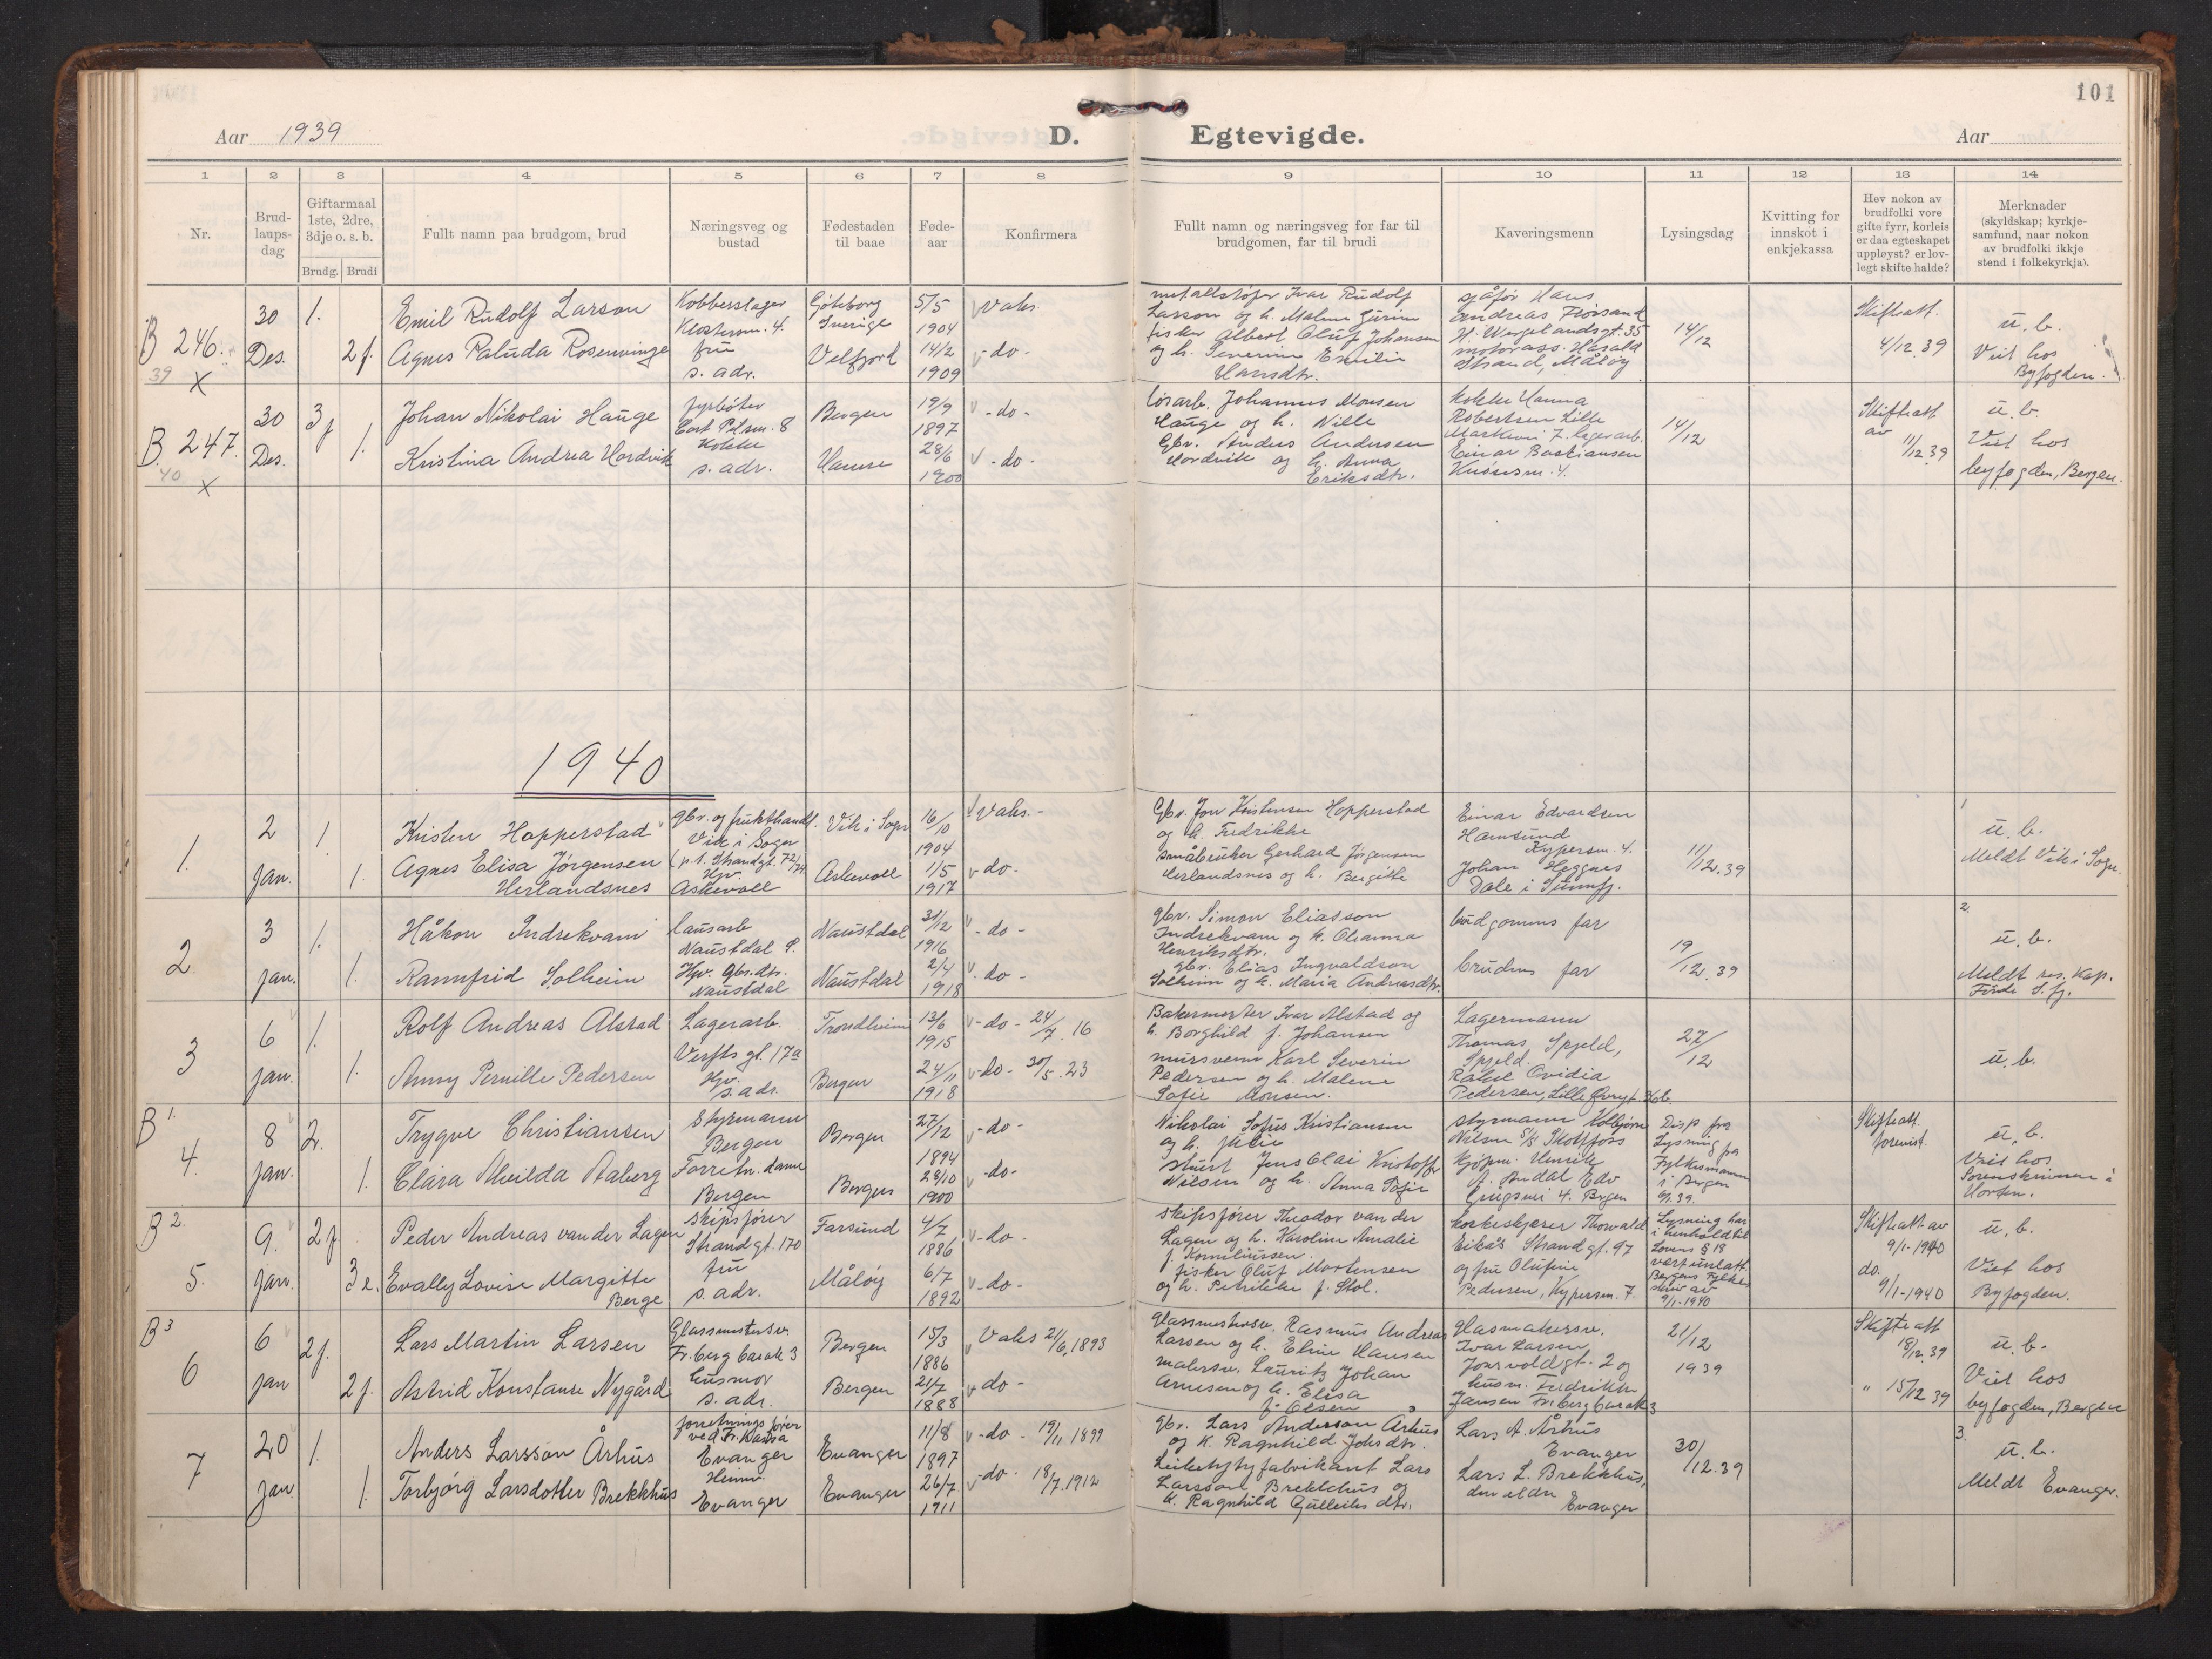 101
Aar 1939
D. Egtevigde.
Aar
1 2 3 4 5 6 7 8 9 10 11 12 13 14
Nr.
Brud-
laups-
dag
Giftarmaal
1ste, 2dre,
3dje o. s. b.
Brudg. Brudi
Fullt namn paa brudgom, brud
Næringsveg og
bustad
Fødestaden
til baae
Føde-
aar
Konfirmera
Fullt namn og næringsveg for far til
brudgomen, far til brudi
Kaveringsmenn
Lysingsdag
Kvitting for
innskot i
enkjekassa
Hev nokon av
brudfolki vore
gifte fyrr, korleis
er daa egteskapet
uppløyst? er lov-
legt skifte halde?
Merknader
(skyldskap; kyrkje-
samfund, naar nokon
av brudfolki ikkje
stend i folkekyrkja).
B 246.
39
X
30
Des.
1.
2 f.
Emil Rudolf Larson
Agnes Paluda Rosenvinge
Kobberslager
Klostersm. 4.
fru
s. adr.
Göteborg
Sverige
Velfjord
5/5
1904
14/2
1909
Vaks.
-do-
metallstøper Ivar Rudolf
Larsson og h. Malene
fisker Albert Oluf Johansen
og h. Severine Emilie
Hansdtr.
sjåför Hans
Andreas Florsand
H. Wergelandsgt. 35
motorass. Harald
Strand, Måløy
14/12
Skifteatt.
4/12.39
u. b.
Viet hos
Byfogden.
B. 247.
40
X
30
Des.
3 f
1.
Johan Nikolai Hauge
Kristina Andrea Hordvik
fyrbøter
Cort Pilsm. 8
Kokke
s. adr.
Bergen
Hamre
19/9
1897
28/6
1900
-do-
-do-
løsarb. Johannes Monsen
Hauge og h. Nille
Gbr. Anders Andersen
Hordvik og h. Anna
Eriksdtr.
kokke Hanna
Robertsen Lille
Markevei 7. lagerarb.
Einar Bastiansen
Knøsesm. 4.
14/12
Skifteatt
av
11/12.39
u. b.
Viet hos
byfogden, Bergen.
1940
1.
2
Jan.
1.
1.
Kristen Hopperstad
Agnes Elisa Jørgensen
Herlandsnes
Gbr. og frukthandl.
Vik i Sogn
(p.t. Strandgt. 72/74.
Hjv.
Askevoll
Vik i Sogn
Askevoll
16/10
1904
1/5
1917
Vaks.-
-do-
Gbr. Jon Kristensen Hopperstad
og h. Fredrikke
småbruker Gerhard Jørgensen
Herlandsnes og h. Bergithe
Einar Edvardsen
Hamsund
Kypersm. 4.
Johan Heggnes
Dale i Sunnfj.
11/12.39
1
u. b.
Meldt Vik i Sogn.
2
3
jan.
1.
1.
Håkon Indrekvam
Rannfrid Solheim
lausarb
Naustdal S.
Hjv. Gbr.dtr.
Naustdal
Naustdal
Naustdal
31/12
1916
2/4
1918
-do-
-do-
gbr. Simon Eliasson
Indrekvam og k. Oleanna
Henriksdtr.
gbr. Elias Ingvaldson
Solheim og k. Maria Andreasdtr.
brudgomens far
brudens far
19/12.39
2.
u. b.
Meldt res. kap.
Førde S. fj.
3
6
jan.
1.
1.
Rolf Andreas Alstad
Anny Pernille Pedersen
Lagerarb.
Verfts gt. 17a
Hjv.
s. adr.
Trondheim
Bergen
13/6
1915
24/11
1918
-do- 24/7.16
-do- 30/5.23
Bakermester Ivar Alstad og
h. Borghild f. Johansen
mursvenn Karl Severin
Pedersen og h. Malene
Sofie Monsen.
Lagermann
Thomas Spjeld,
Spjeld.
Rakel Ovidia
Pedersen, Lille Øvregt. 36 b.
27/12
u. b.
B 1.
4.
8
jan.
2.
1.
Trygve Christiansen
Clara Alvilda Aaberg
Styrmann
Bergen
Forretn. dame
Bergen
Bergen
Bergen
27/12
1894
28/10
1900
-do-
-do-
Nikolai Sofus Kristiansen
og h.
stuert Jens Olai Kristoffer
Nilsen og h. Anna Sofie
styrmann
Nilsen S/S Skotfoss
kjøpm. Henrik
A. Andal Edv
Griegsvei 4. Bergen
Disp fra
Lysning fra
Fylkesmannen
i Bergen
Skifteatt.
forevist
u. b.
Viet hos
Sorenskriveren i
Horten.
B 2.
5.
9.
Jan.
2 f
3 e.
Peder Andreas van der Lagen
Evally Lovise Margitte
Berge
Skipsfører
Strandgt. 170
fru
s. adr.
Farsund
Måløy
4/7
1886
6/7
1892
-do-
-do-
Skipsfører Theodor van der
Lagen og h. Karoline Amalie
f. Korneliussen.
fisker Oluf Mortensen
og h. Petrikke f. Stol.
korkeskjærer Thorvald
Eikås Strandgt. 97
og fru Olufine
Pedersen, Kypersm. 7.
Lysning har
i henhold til
Lovens § 18
vært unlatt.
Bergens Fylkes
skriv av
9/1-1940
Skifteatt av
9/1-1940
do.
9/1-1940
u. b.
Viet hos
Byfogden.
B 3
6
6
jan
2 f.
2 f.
Lars Martin Larsen
Astrid Konstanse Nygård
Glassmestersv.
Fr.berg barak 3
husmor
s. adr.
Bergen
Bergen
15/3
1886
21/7
1888
Vaks 21/6,1893
-do-
Glassmestersv. Rasmus Andreas
Larsen og h. Eline Hansen
malersv. Lauritz Johan
Arnesen og h. Elisa
f. Olsen
Glasmakersv.
Ivar Larsen
Jonsvoldgt. 2 og
husm. Fredrikke
Jansen Fr.berg barak 3
21/12
1939
Skifteatt
18/12.39
" 15/12 39
u. b.
Viet hos
byfogden, Bergen
7
20
Jan
1.
1.
Anders Larsson Århus
Torbjørg Larsdotter Brekkhus
forretningsfører
ved Fr. Kassa
Evanger
Heimv.
Evanger
Evanger
Evanger
11/8
1897
26/7
1911
-do- 19/11 1899
-do- 18/7.1912
gbr. Lars Andersson Århus
og k. Ragnhild Johsdtr.
Leiketyfabrikant Lars
Larsson Brekkhus og
k. Ragnhild Gulleiksdtr.
Lars A. Århus
Evanger
Lars L. Brekkhus,
den eldre
Evanger
30/12.39
3.
u. b.
Meldt Evanger.